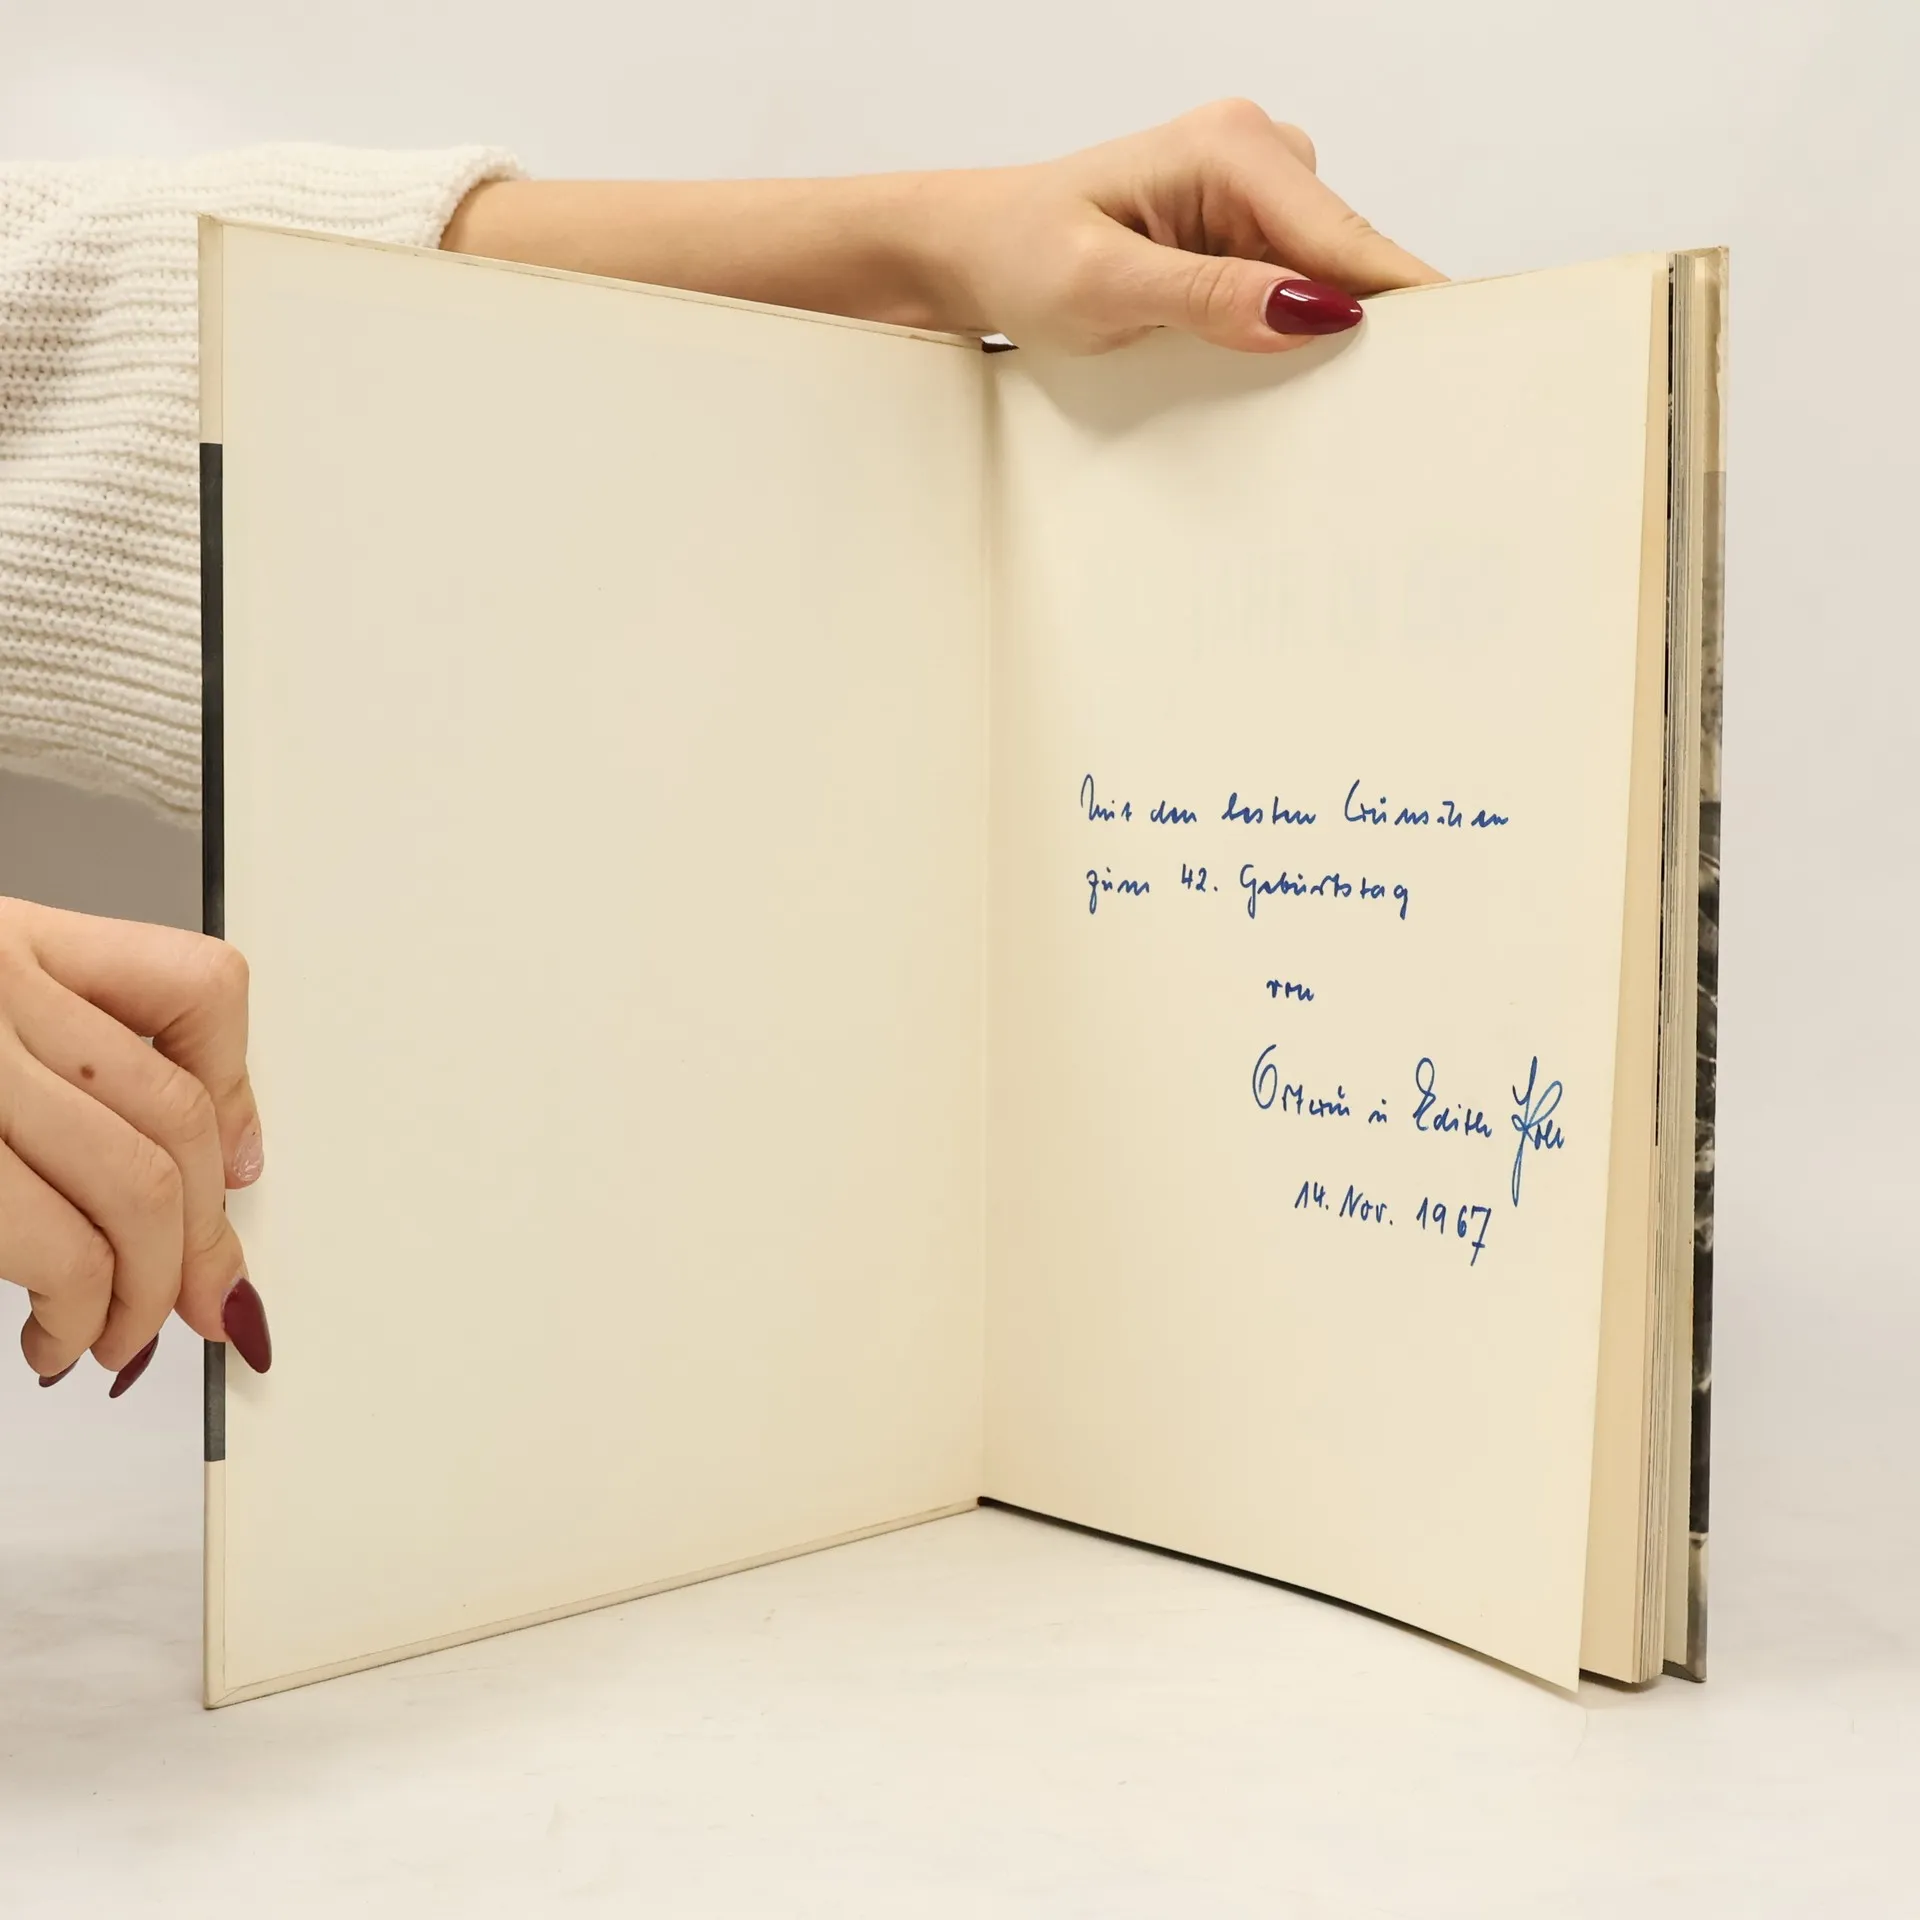 Mit den besten Wünschen
zum 42. Geburtstag
von
Ortwin u Edith
14. Nov. 1967